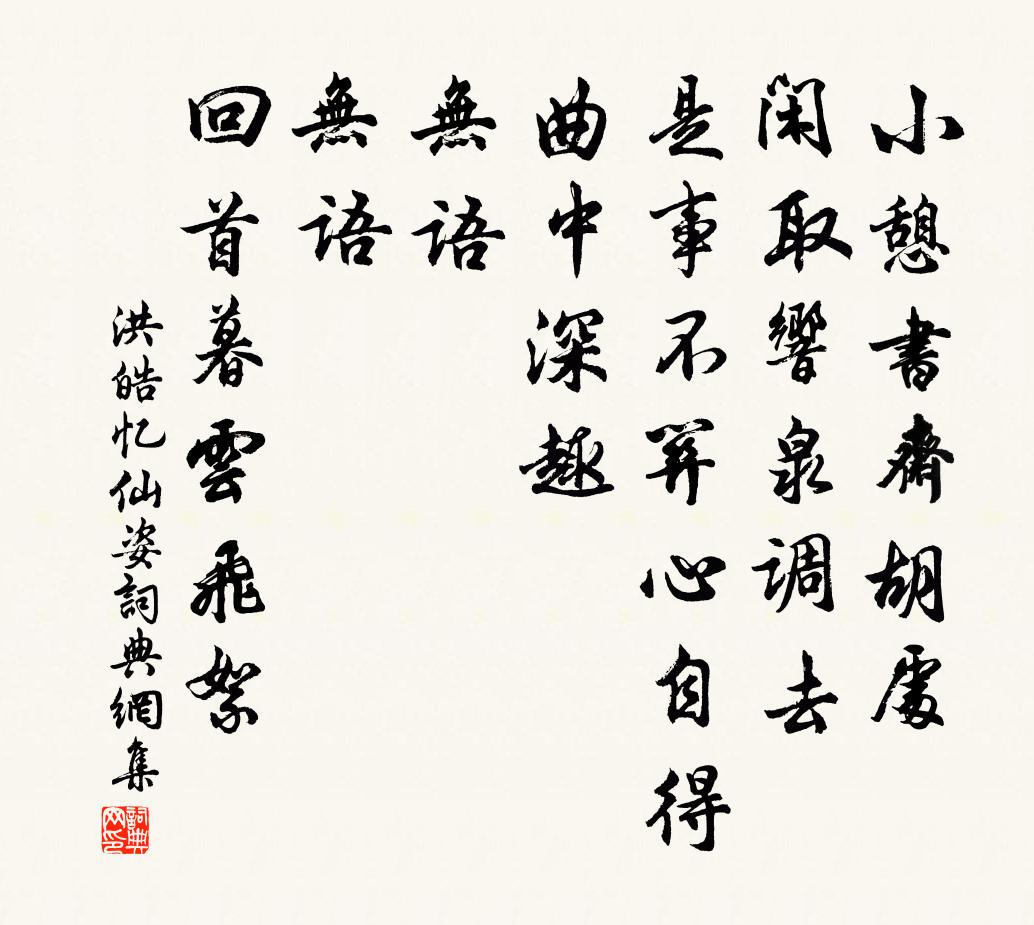 小憩書齋胡處
閑取響泉调去
是事不笄心自得
曲中深趣
無語
無語
回首暮雲飛絮
洪皓忆仙姿詞典網集
詞典网印